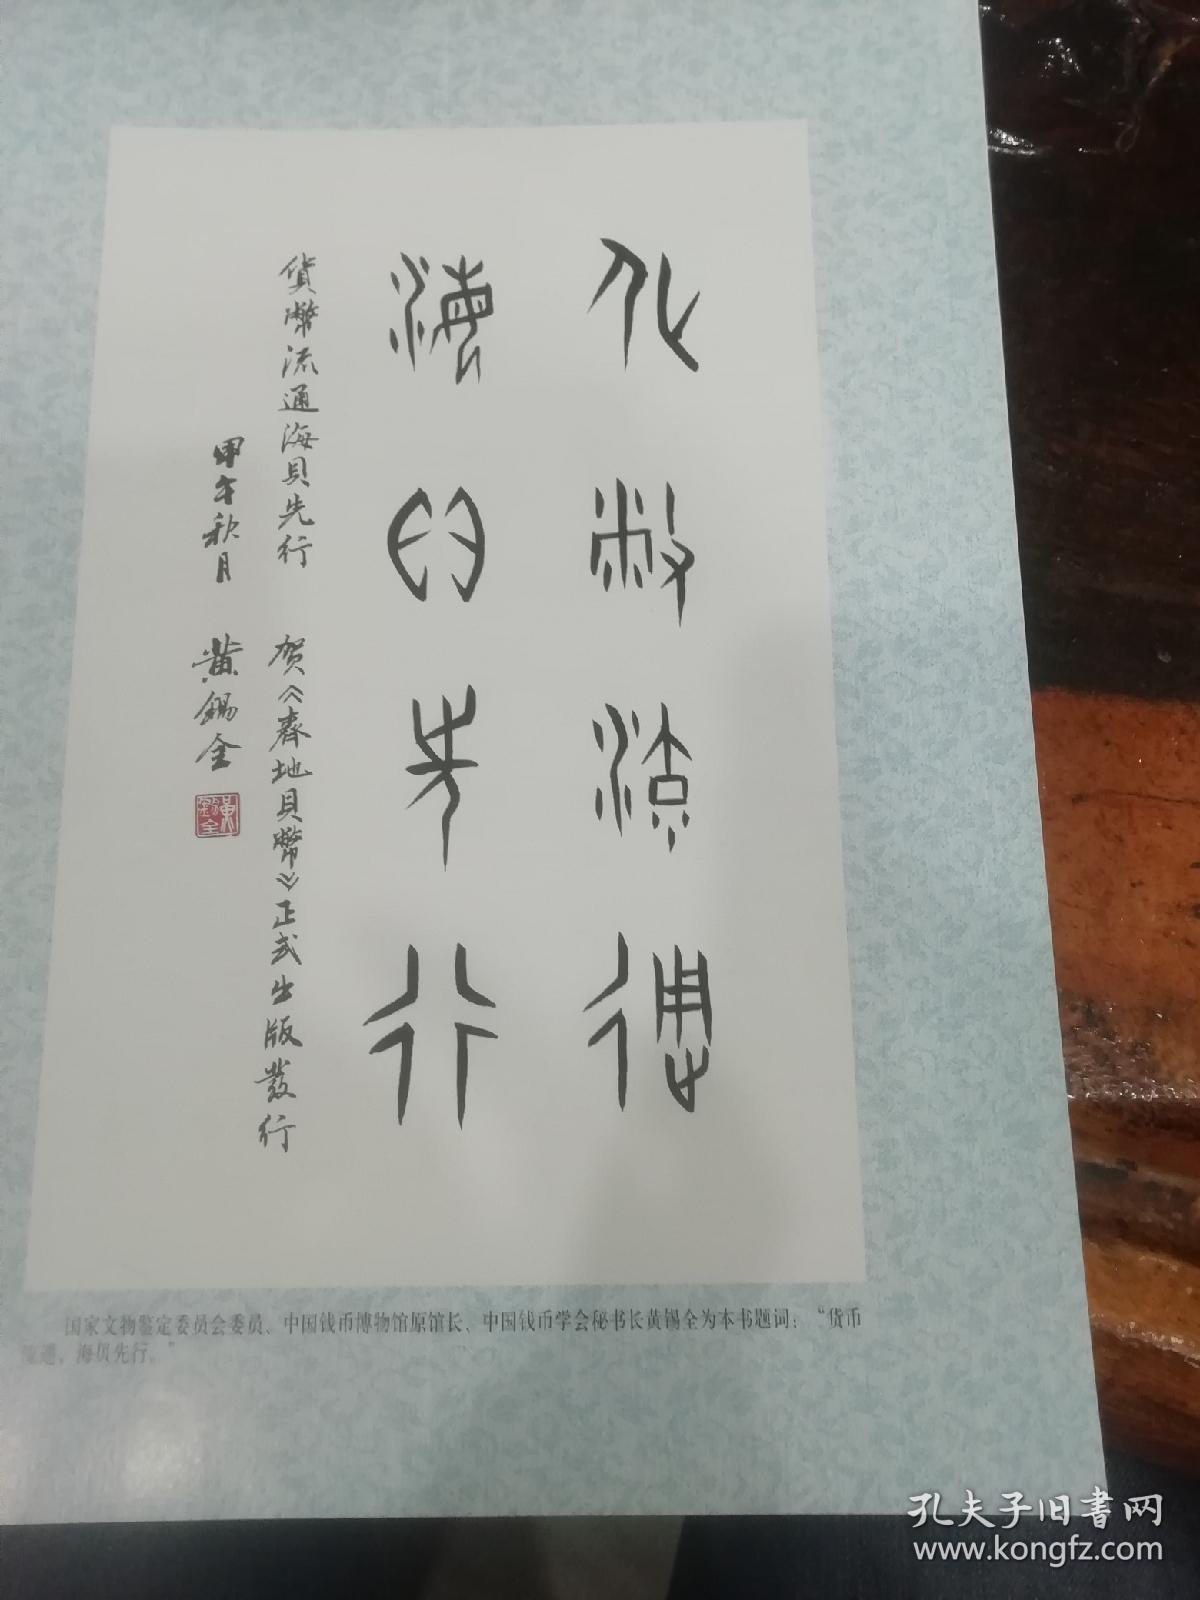 化敝流通
海贝先行
貨幣流通海貝先行 贺《齊地貝幣》正式出版發行
甲午秋月 黄錫全
国家文物鉴定委员会委员、中国钱币博物馆原馆长、中国钱币学会秘书长黄锡全为本书题词：“货币
流通，海贝先行。”
孔夫子旧书网
www.kongfz.com